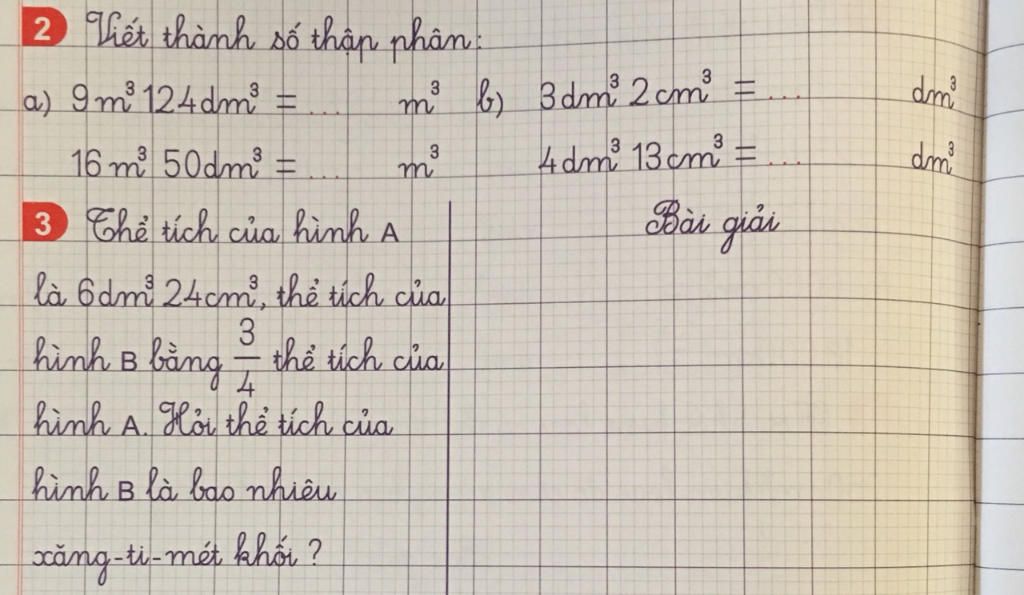 2 Viết thành số thập phân:
a) 9m³ 124dm³ = ... m³ b) 3dm³ 2cm³ = ... dm³
16m³ 50dm³ = ... m³ 4dm³ 13cm³ = ... dm³
3 Thể tích của hình A
là 6dm³ 24cm³, thể tích của
hình B bằng 3/4 thể tích của
hình A. Hỏi thể tích của
hình B là bao nhiêu
xăng-ti-mét khối ?
Bài giải